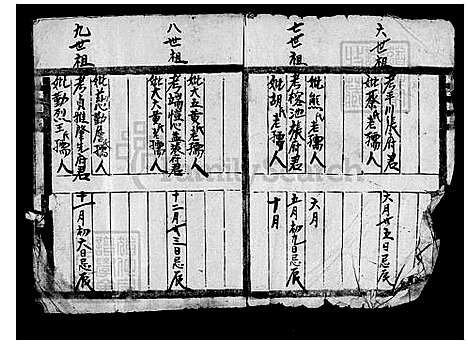 六世祖
考平川張府君
妣蔡氏老孺人
六月廿五日忌辰
七世祖
考榕池張府君
妣熊氏老孺人
妣胡氏老孺人
六月
五月初九日忌辰
十月
八世祖
妣大五黃氏老孺人
考端愷張府君
妣大大黃氏老孺人
十二月廿三日忌辰
九世祖
妣慈勤 孺人
考貞雅 府君
妣勤烈王氏孺人
十一月初六日忌辰
FamilySearch